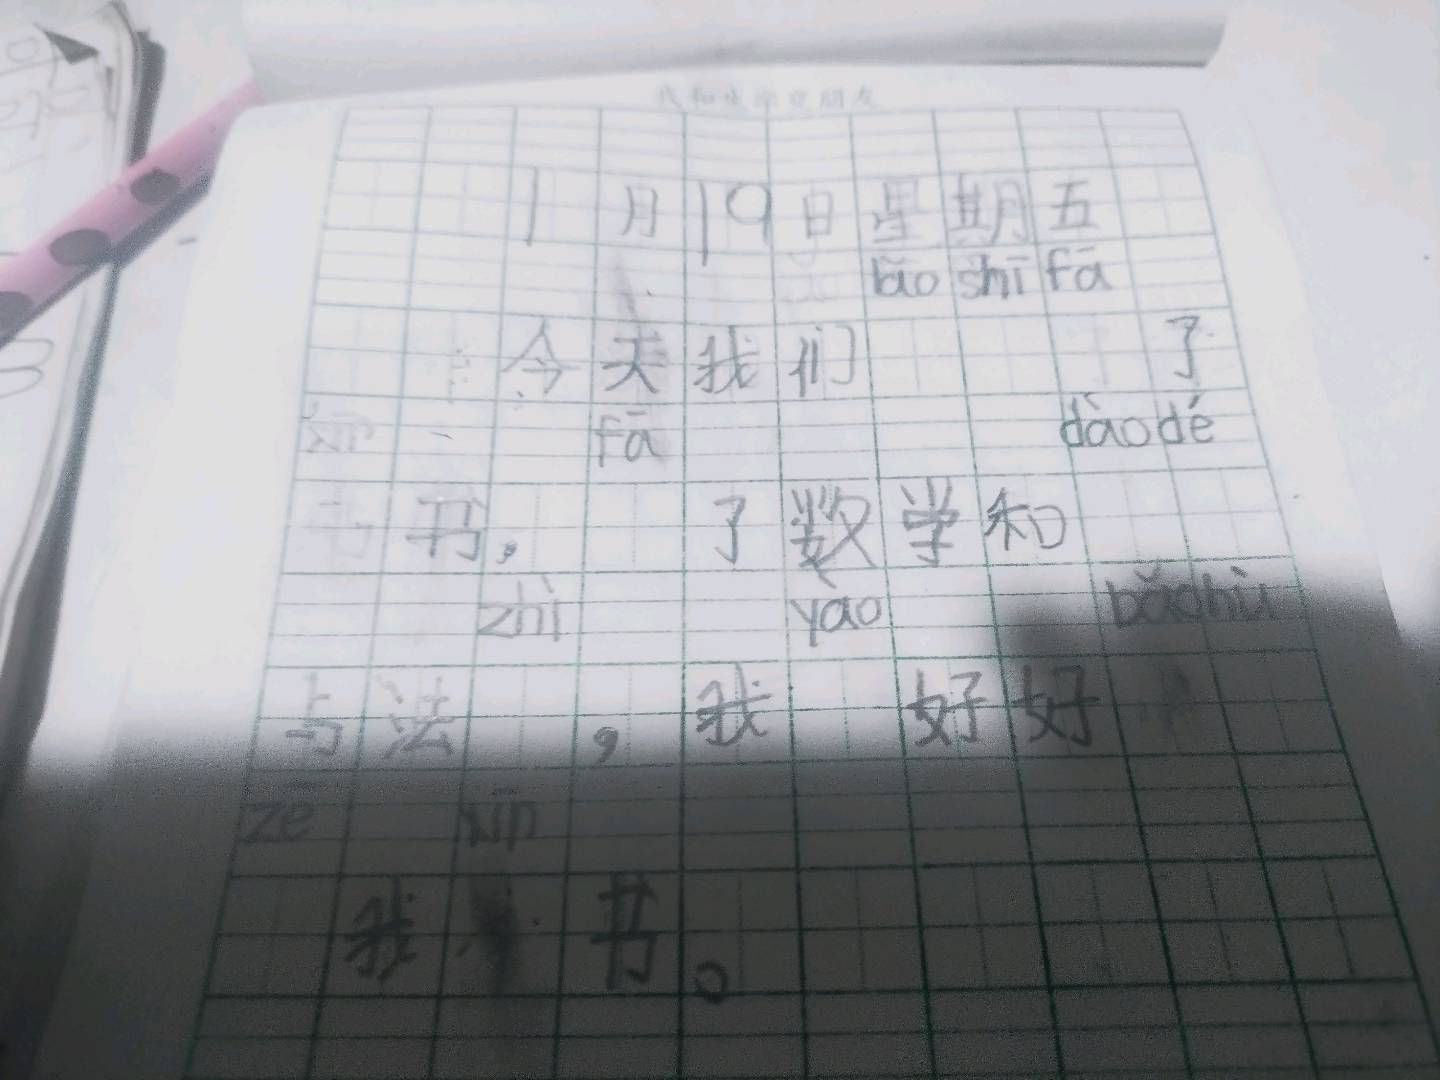 我和生字交朋友
1月19日星期五
lǎo shī fā
今天我们了
xīn fā dào dé
书，了数学和
zhì yào bǎo hù
与法，我好好
zé xīn
我书。